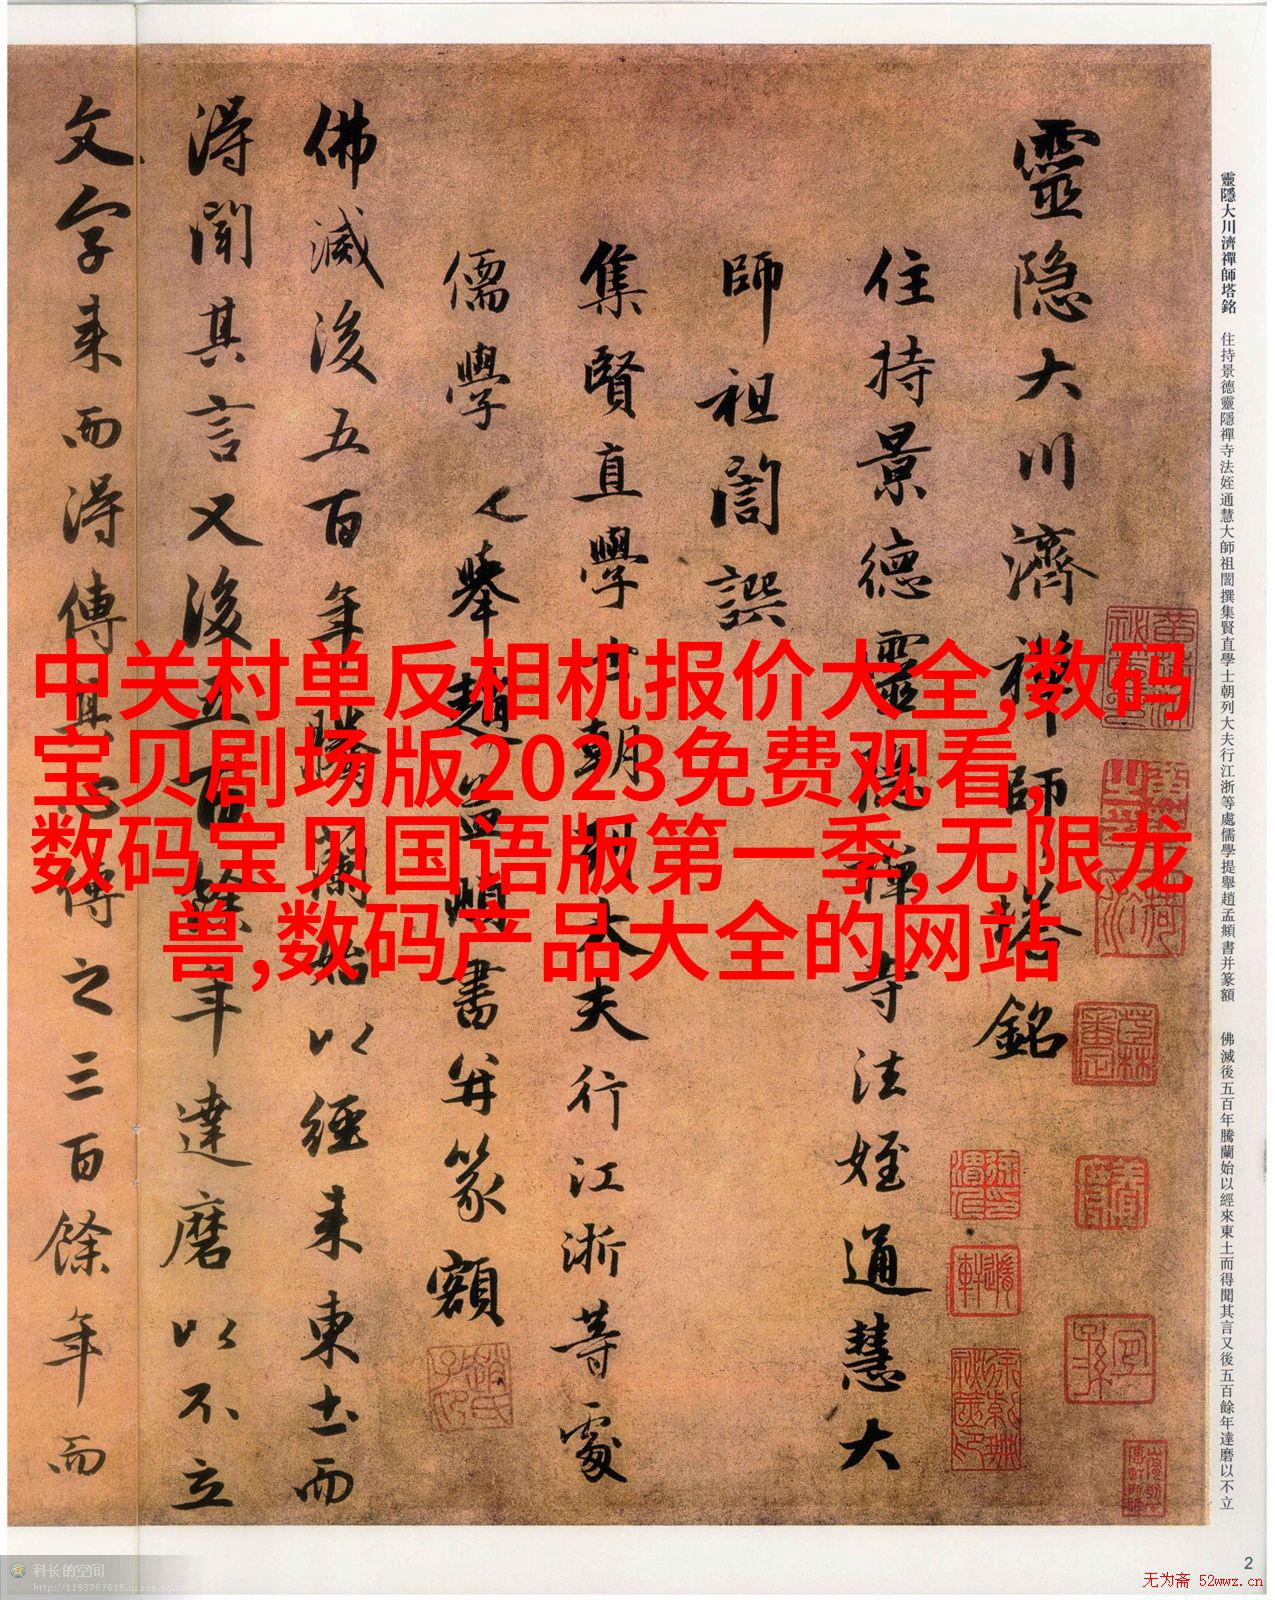 靈隱大川濟禪師塔銘 住持景德靈隱禪寺法姪通慧大師祖誾撰集賢直學士朝列大夫行江浙等處儒學提舉趙孟頫書并篆額 佛滅後五百年騰蘭始以經來東土而得聞其言又後五百餘年達磨以不立
靈隐大川濟禅師塔銘
住持景德靈隐禅寺法姪通慧大
師祖誾譔
集賢直學士朝列大夫行江浙等處
儒學提舉趙孟頫書并篆額
佛滅後五百年騰蘭始以經来東土而
得聞其言又後五百餘年達磨以不立
文字来而得傳其心傳之三百餘年而
中关村单反相机报价大全,数码
宝贝剧场版2023免费观看,
数码宝贝国语版第一季,无限龙
兽,数码产品大全的网站
科长的空间
http://1193767618.qzone.qq.com
2
无为斋 52wwz.cn